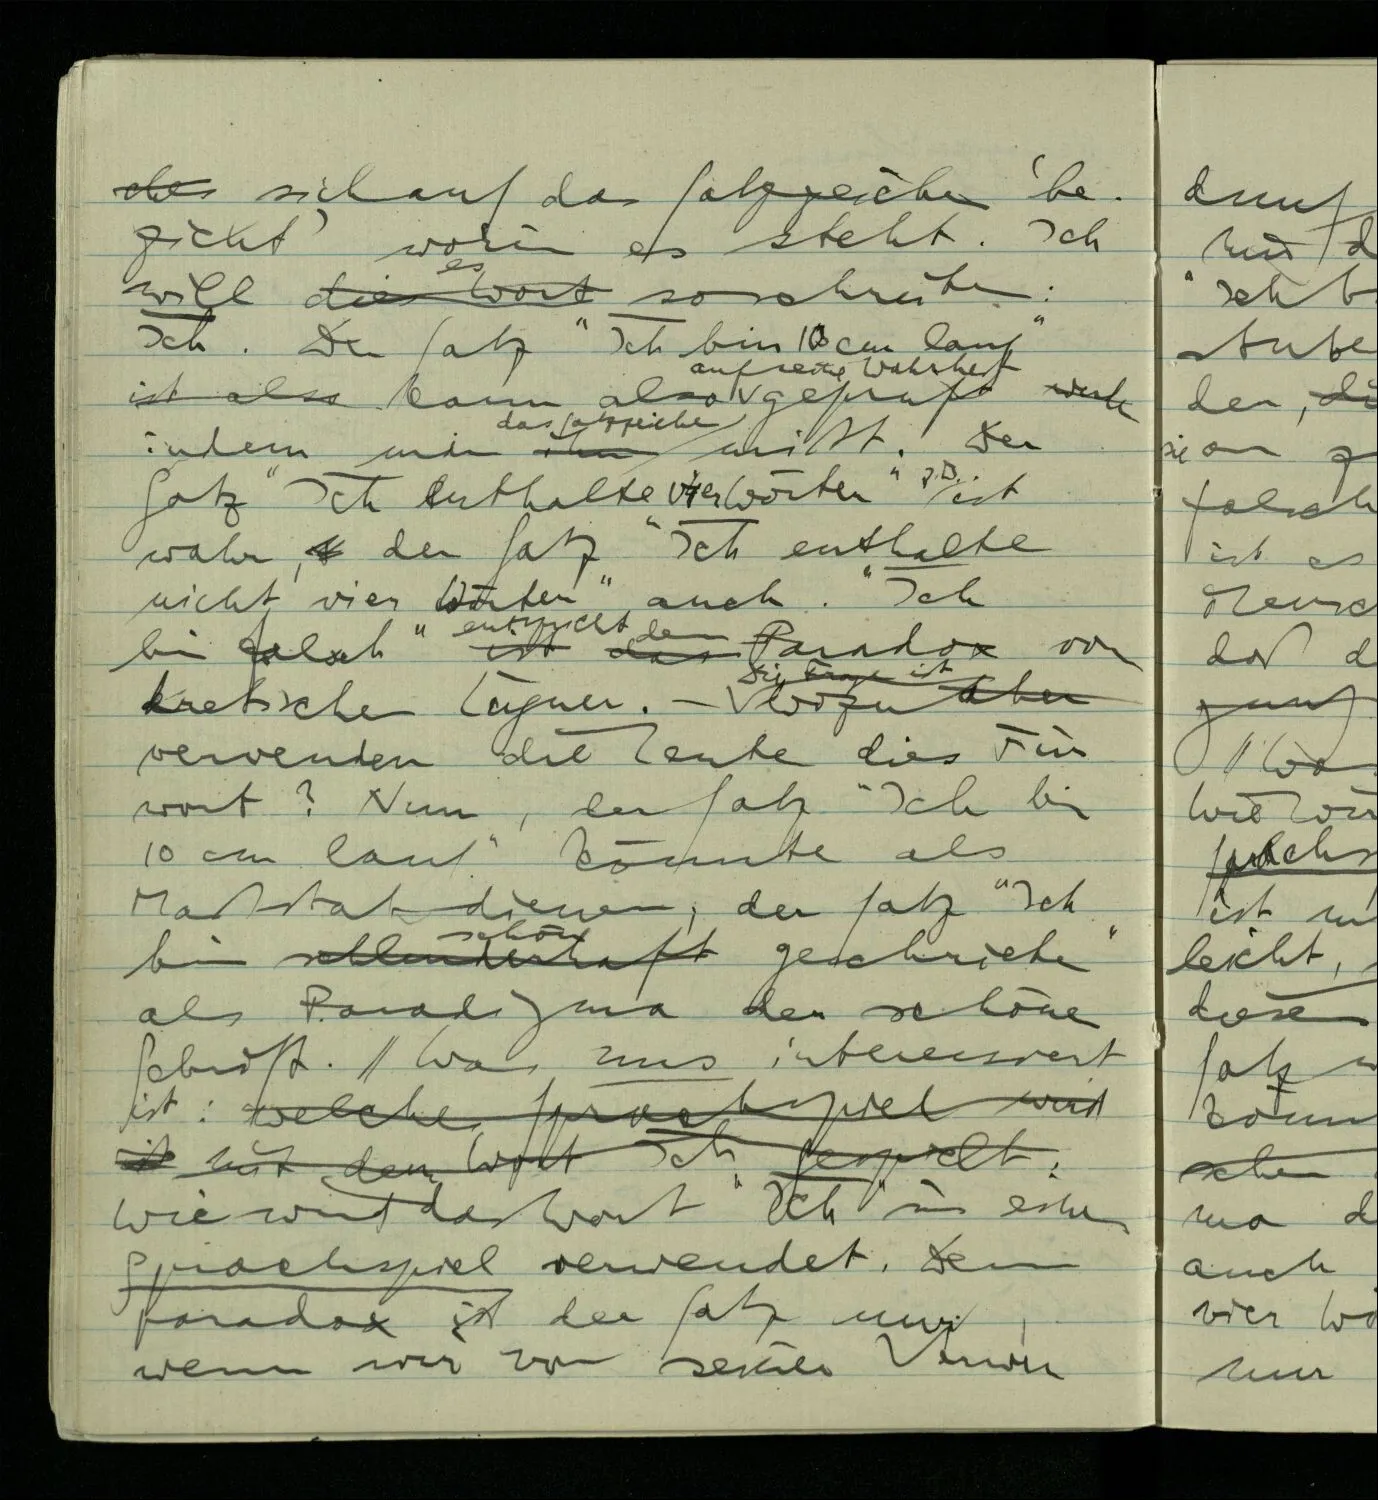 das sich auf das Satzzeichen 'be-
zieht' worin es steht. Ich
es
will dies Wort so schreiben:
Ich. Der Satz "Ich bin 10 cm lang"
auf seine Wahrheit
ist also kann also geprüft werden
das Satzzeichen
indem man ihn mißt. Der
Satz "Ich enthalte vier Wörter" z.B. ist
wahr, & der Satz "Ich enthalte
nicht vier Wörter" auch. "Ich
entspricht dem
bin falsch" ist das Paradox vom
Die Frage ist
kretischen Lügner. – Wozu aber
verwenden die Leute dies Für
wort? Nun, der Satz "Ich bin
10 cm lang" könnte als
Maßstab dienen, der Satz "Ich
schön
bin schleuderhaft geschrieben"
als Paradigma der schönen
Schrift. // Was uns interessiert
ist: welches Sprachspiel wird
ist mit dem Wort Ich gespielt:
Wie wird das Wort "Ich" in einem
Sprachspiel verwendet. Denn
paradox ist der Satz nur,
wenn wir von seiner Verwen
"Ich b
der, di
sie an
falsch
ist es
Mensc
daß d
// Wa
ist
leicht,
Satz
könn
ma d
auch
vier Wö
nur